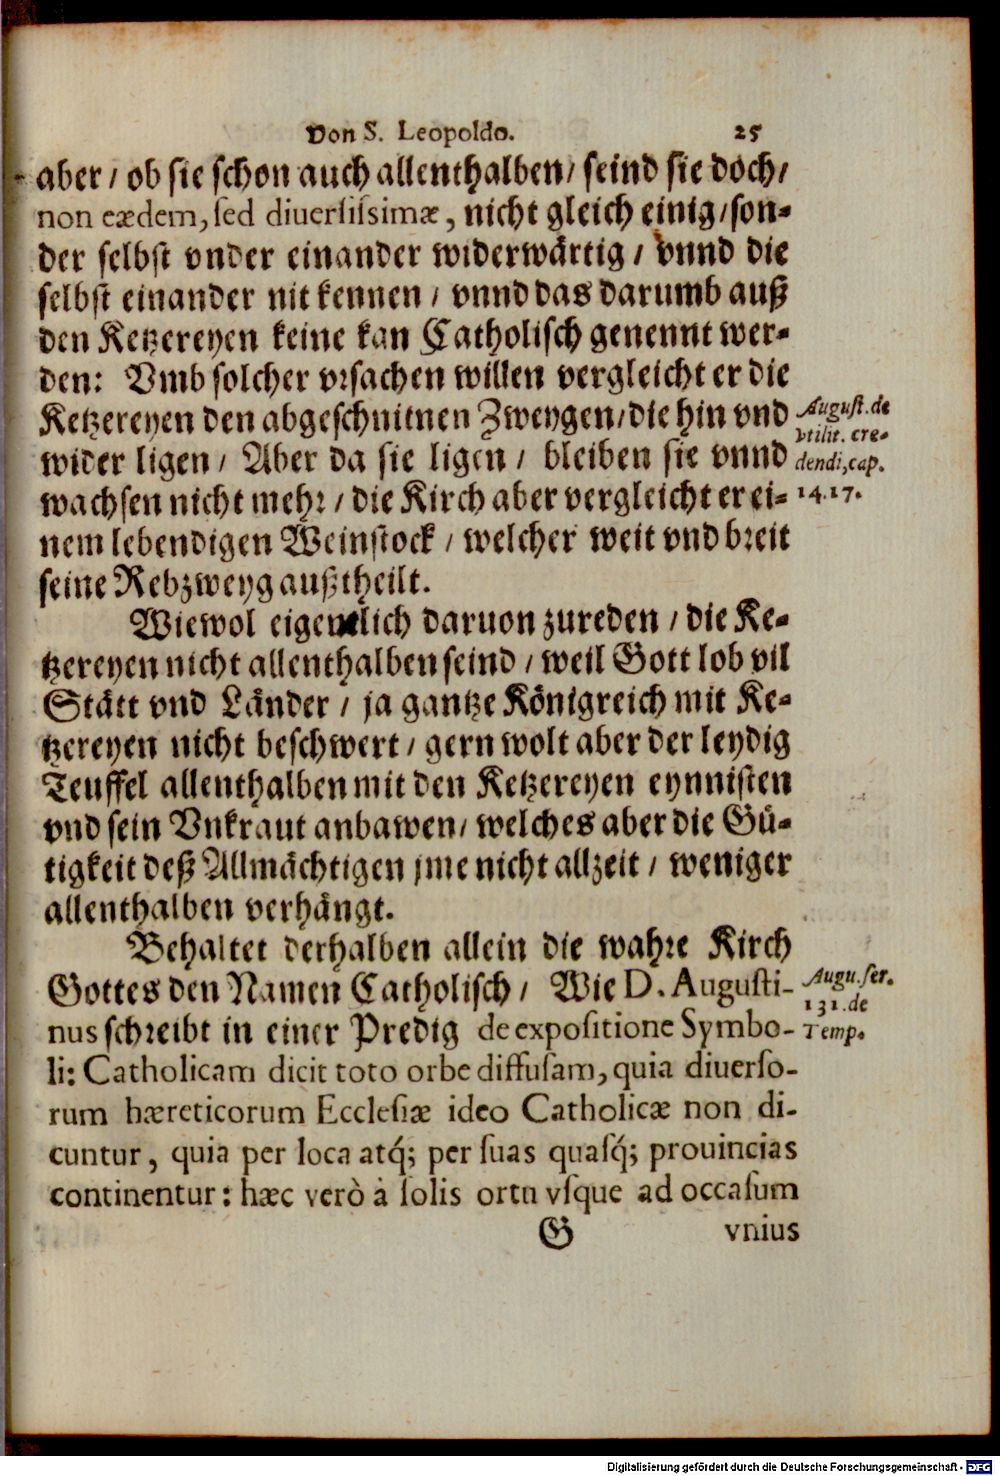 Von S. Leopoldo. 25
aber / ob sie schon auch allenthalben / seind sie doch /
non eædem, sed diuersissimæ, nicht gleich einig / son-
der selbst vnder einander widerwärtig / vnnd die
selbst einander nit kennen / vnnd das darumb auß
den Ketzereyen keine kan Catholisch genennt wer-
den: Vmb solcher vrsachen willen vergleicht er die
Ketzereyen den abgeschnitnen Zweygen / die hin vnd
wider ligen / Aber da sie ligen / bleiben sie vnnd
wachsen nicht mehr / die Kirch aber vergleicht er ei-
nem lebendigen Weinstock / welcher weit vnd breit
seine Rebzweyg außtheilt.
August. de
vtilit. cre-
dendi, cap.
14.17.
Wiewol eigentlich daruon zureden / die Ke-
tzereyen nicht allenthalben seind / weil Gott lob vil
Stätt vnd Länder / ja gantze Königreich mit Ke-
tzereyen nicht beschwert / gern wolt aber der leydig
Teuffel allenthalben mit den Ketzereyen eynnisten
vnd sein Vnkraut anbawen / welches aber die Gü-
tigkeit deß Allmächtigen jme nicht allzeit / weniger
allenthalben verhängt.
Behaltet derhalben allein die wahre Kirch
Gottes den Namen Catholisch / Wie D. Augusti-
nus schreibt in einer Predig de expositione Symbo-
li: Catholicam dicit toto orbe diffusam, quia diuerso-
rum hæreticorum Ecclesiæ ideo Catholicæ non di-
cuntur, quia per loca atq́; per suas quasq́; prouincias
continentur: hæc verò à solis ortu vsque ad occasum
Augu. ser.
131. de
Temp.
G vnius
Digitalisierung gefördert durch die Deutsche Forschungsgemeinschaft - DFG